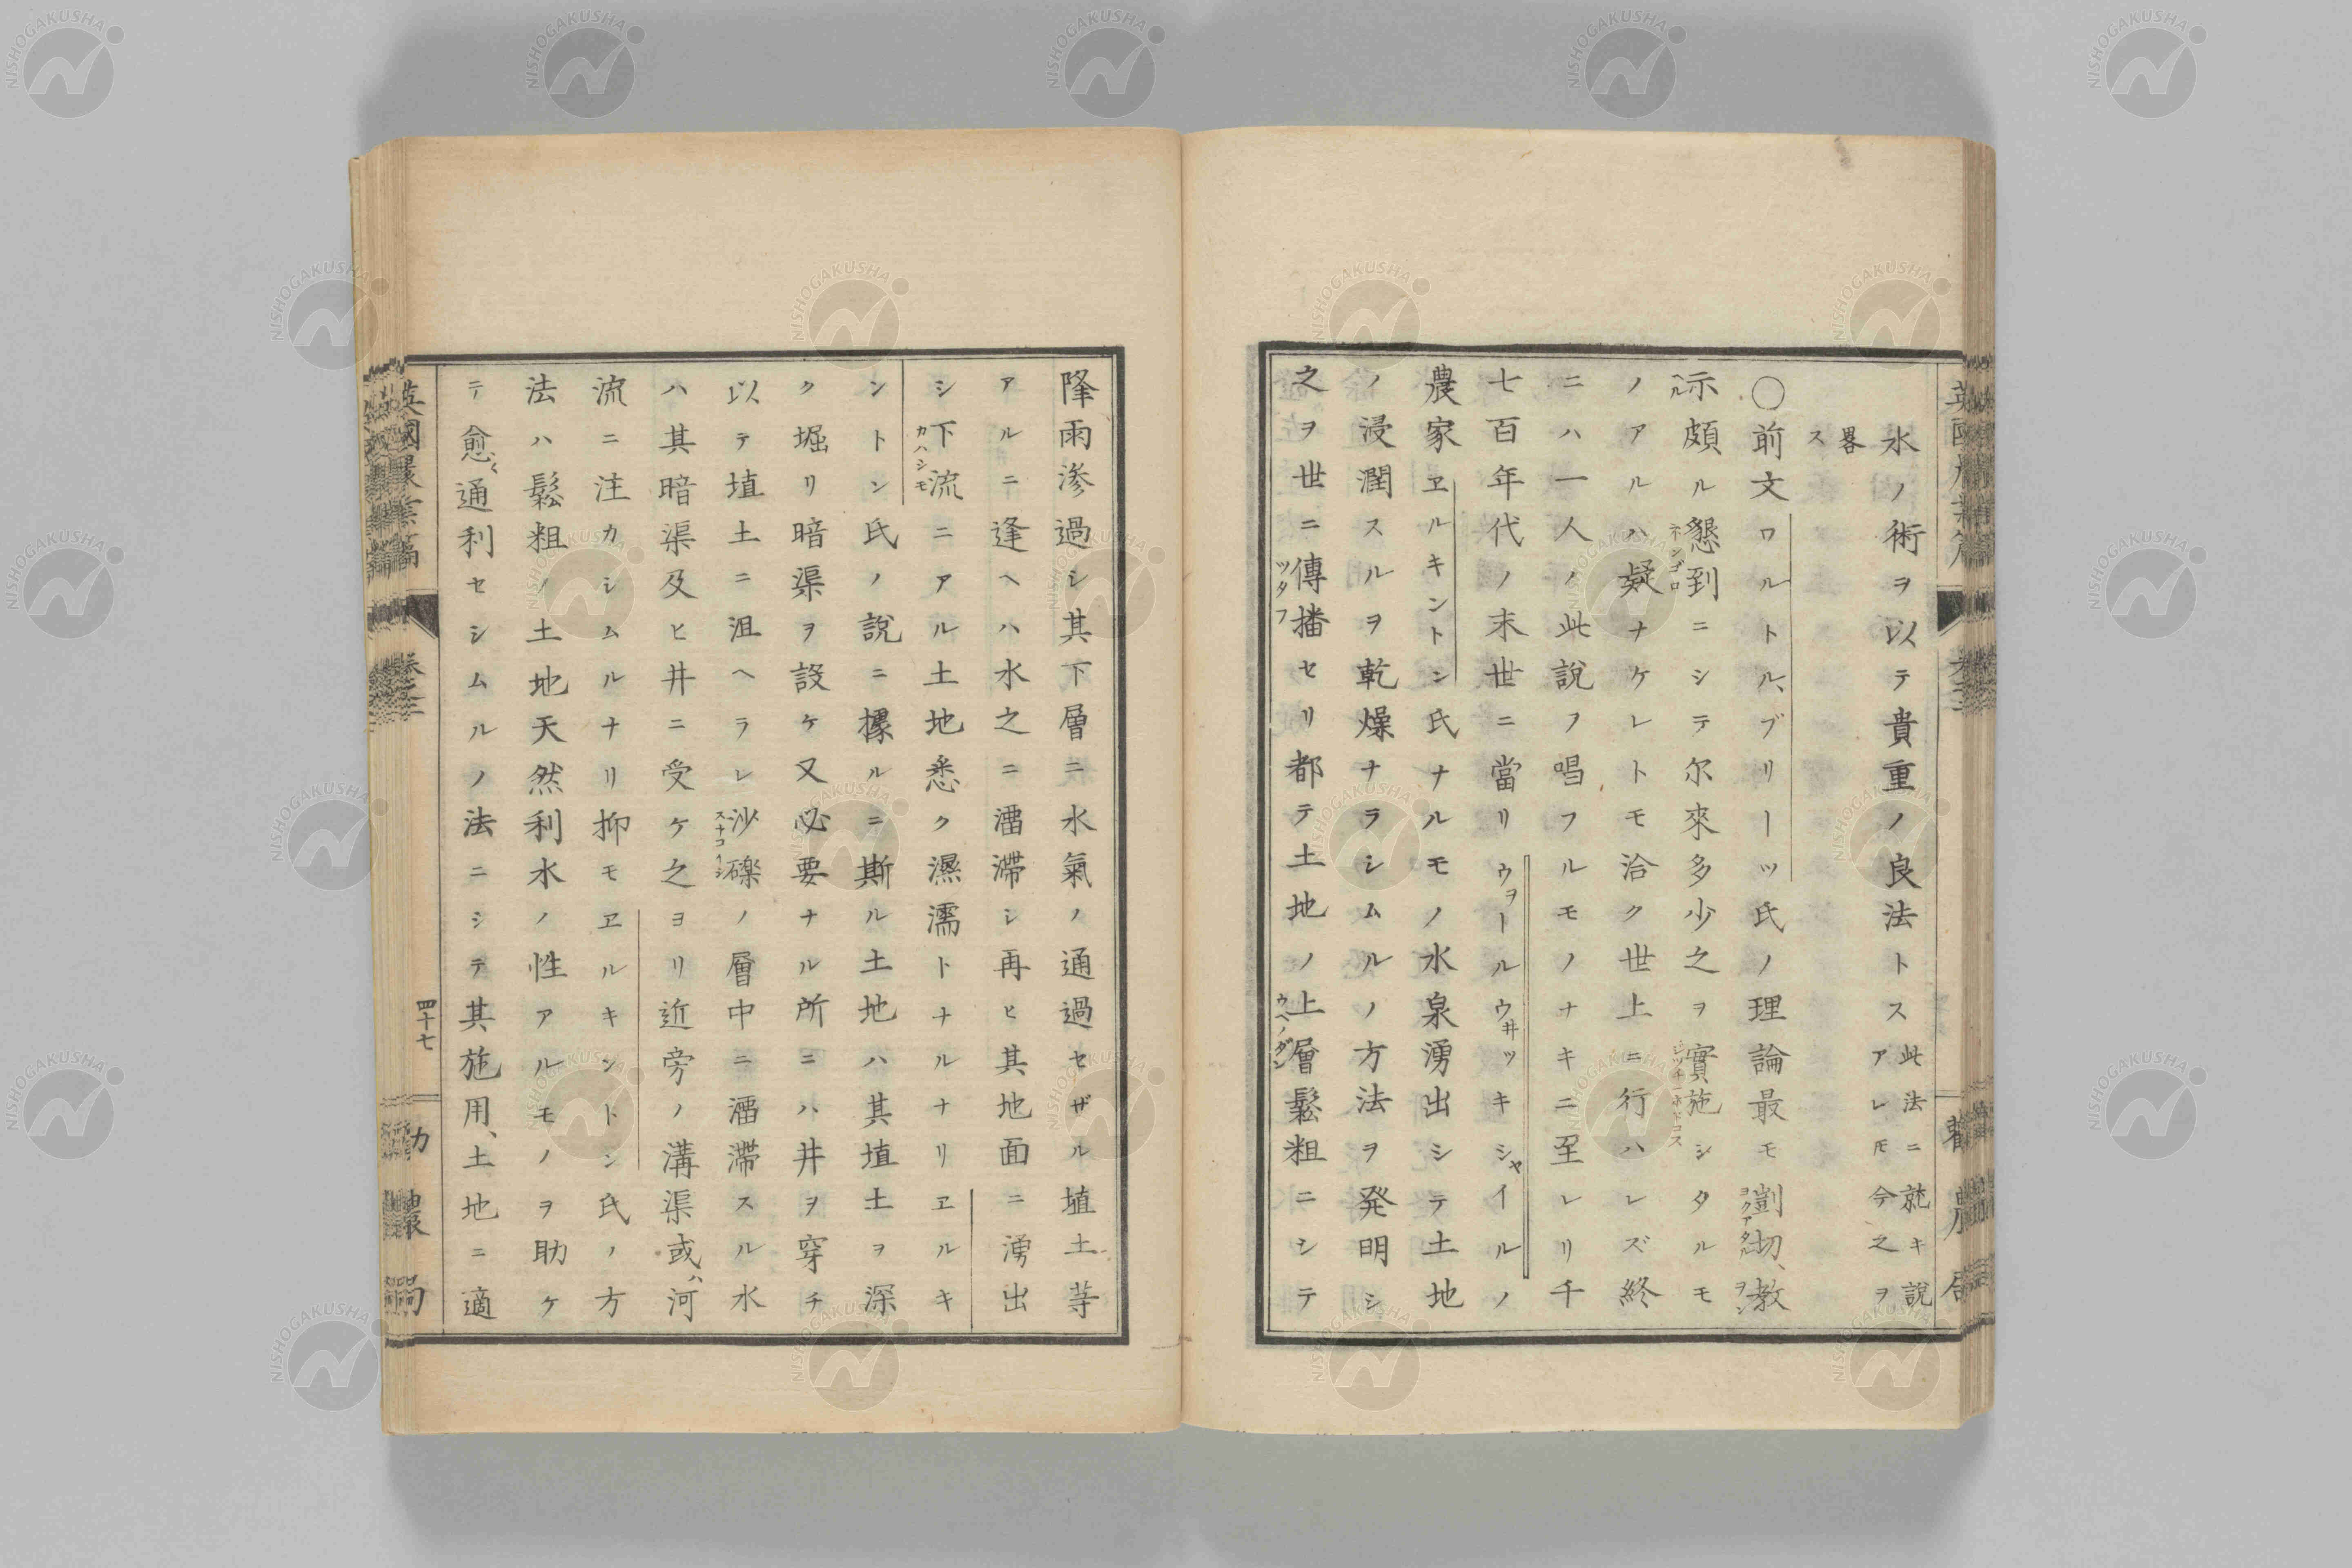 水ノ術ヲ以テ貴重ノ良法トス此法ニ就キ説アレ𪜈今之ヲ
畧ス
〇前文ワルトル、ブリーツ氏ノ理論最モ剴切、教
示頗ル懇到ニシテ尔來多少之ヲ實施シタルモ
ノアルハ疑ナケレトモ洽ク世上ニ行ハレズ終
ニハ一人ノ此説ヲ唱フルモノナキニ至レリ千
七百年代ノ末世ニ當リウヲールウ井ツキシャイルノ
農家ヱルキントン氏ナルモノ水泉湧出シテ土地
ノ浸潤スルヲ乾燥ナラシムルノ方法ヲ発明シ
之ヲ世ニ傳播セリ都テ土地ノ上層鬆粗ニシテ
降雨滲過シ其下層ニ水氣ノ通過セザル埴土等
アルニ逢ヘハ水之ニ澑滯シ再ヒ其地面ニ湧出
シ下流ニアル土地悉ク濕濡トナルナリヱルキ
ントン氏ノ説ニ據ルニ斯ル土地ハ其埴土ヲ深
ク堀リ暗渠ヲ設ケ又必要ナル所ニハ井ヲ穿チ
以テ埴土ニ沮ヘラレ沙礫ノ層中ニ澑滯スル水
ハ其暗渠及ヒ井ニ受ケ之ヨリ近旁ノ溝渠或ハ河
流ニ注カシムルナリ抑モヱルキントン氏ノ方
法ハ鬆粗ノ土地天然利水ノ性アルモノヲ助ケ
テ愈〻通利セシムルノ法ニシテ其施用、土地ニ適
英國農業篇 卷三 四十七 勸農局
NISHOGAKUSHA